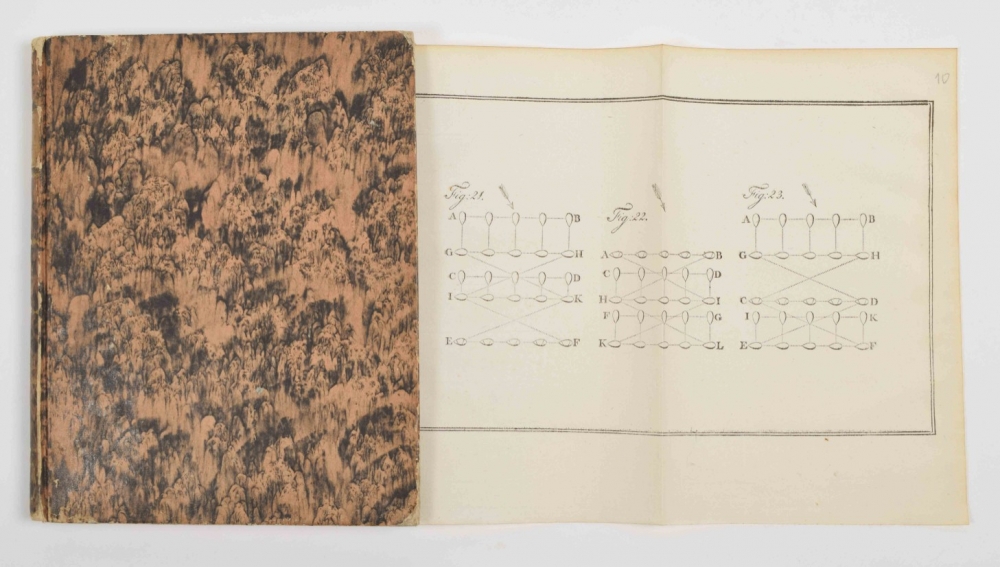 10
Fig: 21.
A B
G H
C D
I K
E F
Fig: 22.
A B
C D
H I
F G
K L
Fig: 23.
A B
G H
C D
I K
E F